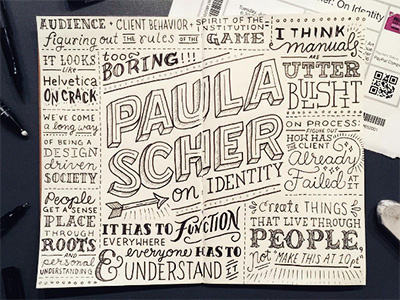 AUDIENCE + CLIENT BEHAVIOR + SPIRIT OF THE INSTITUTION
figuring out the rules of the GAME
IT LOOKS
LIKE
Helvetica
ON CRACK.
WE'VE COME
a long way
OF BEING A
DESIGN
driven
SOCIETY
People
GET A SENSE
of PLACE
THROUGH
ROOTS
AND personal
UNDERSTANDING
too
BORING!!!
PAULA
SCHER
on IDENTITY
IT HAS TO FUNCTION
EVERYWHERE
& everyone HAS TO
UNDERSTAND IT
I THINK
manuals
ARE
UTTER
BULLSH!T
ON PROCESS:
FIGURE OUT
HOW HAS
THE CLIENT
Already
Failed AT IT
Create THINGS
THAT LIVE THROUGH
PEOPLE,
not "MAKE THIS AT 10pt"
Scher: On Identity